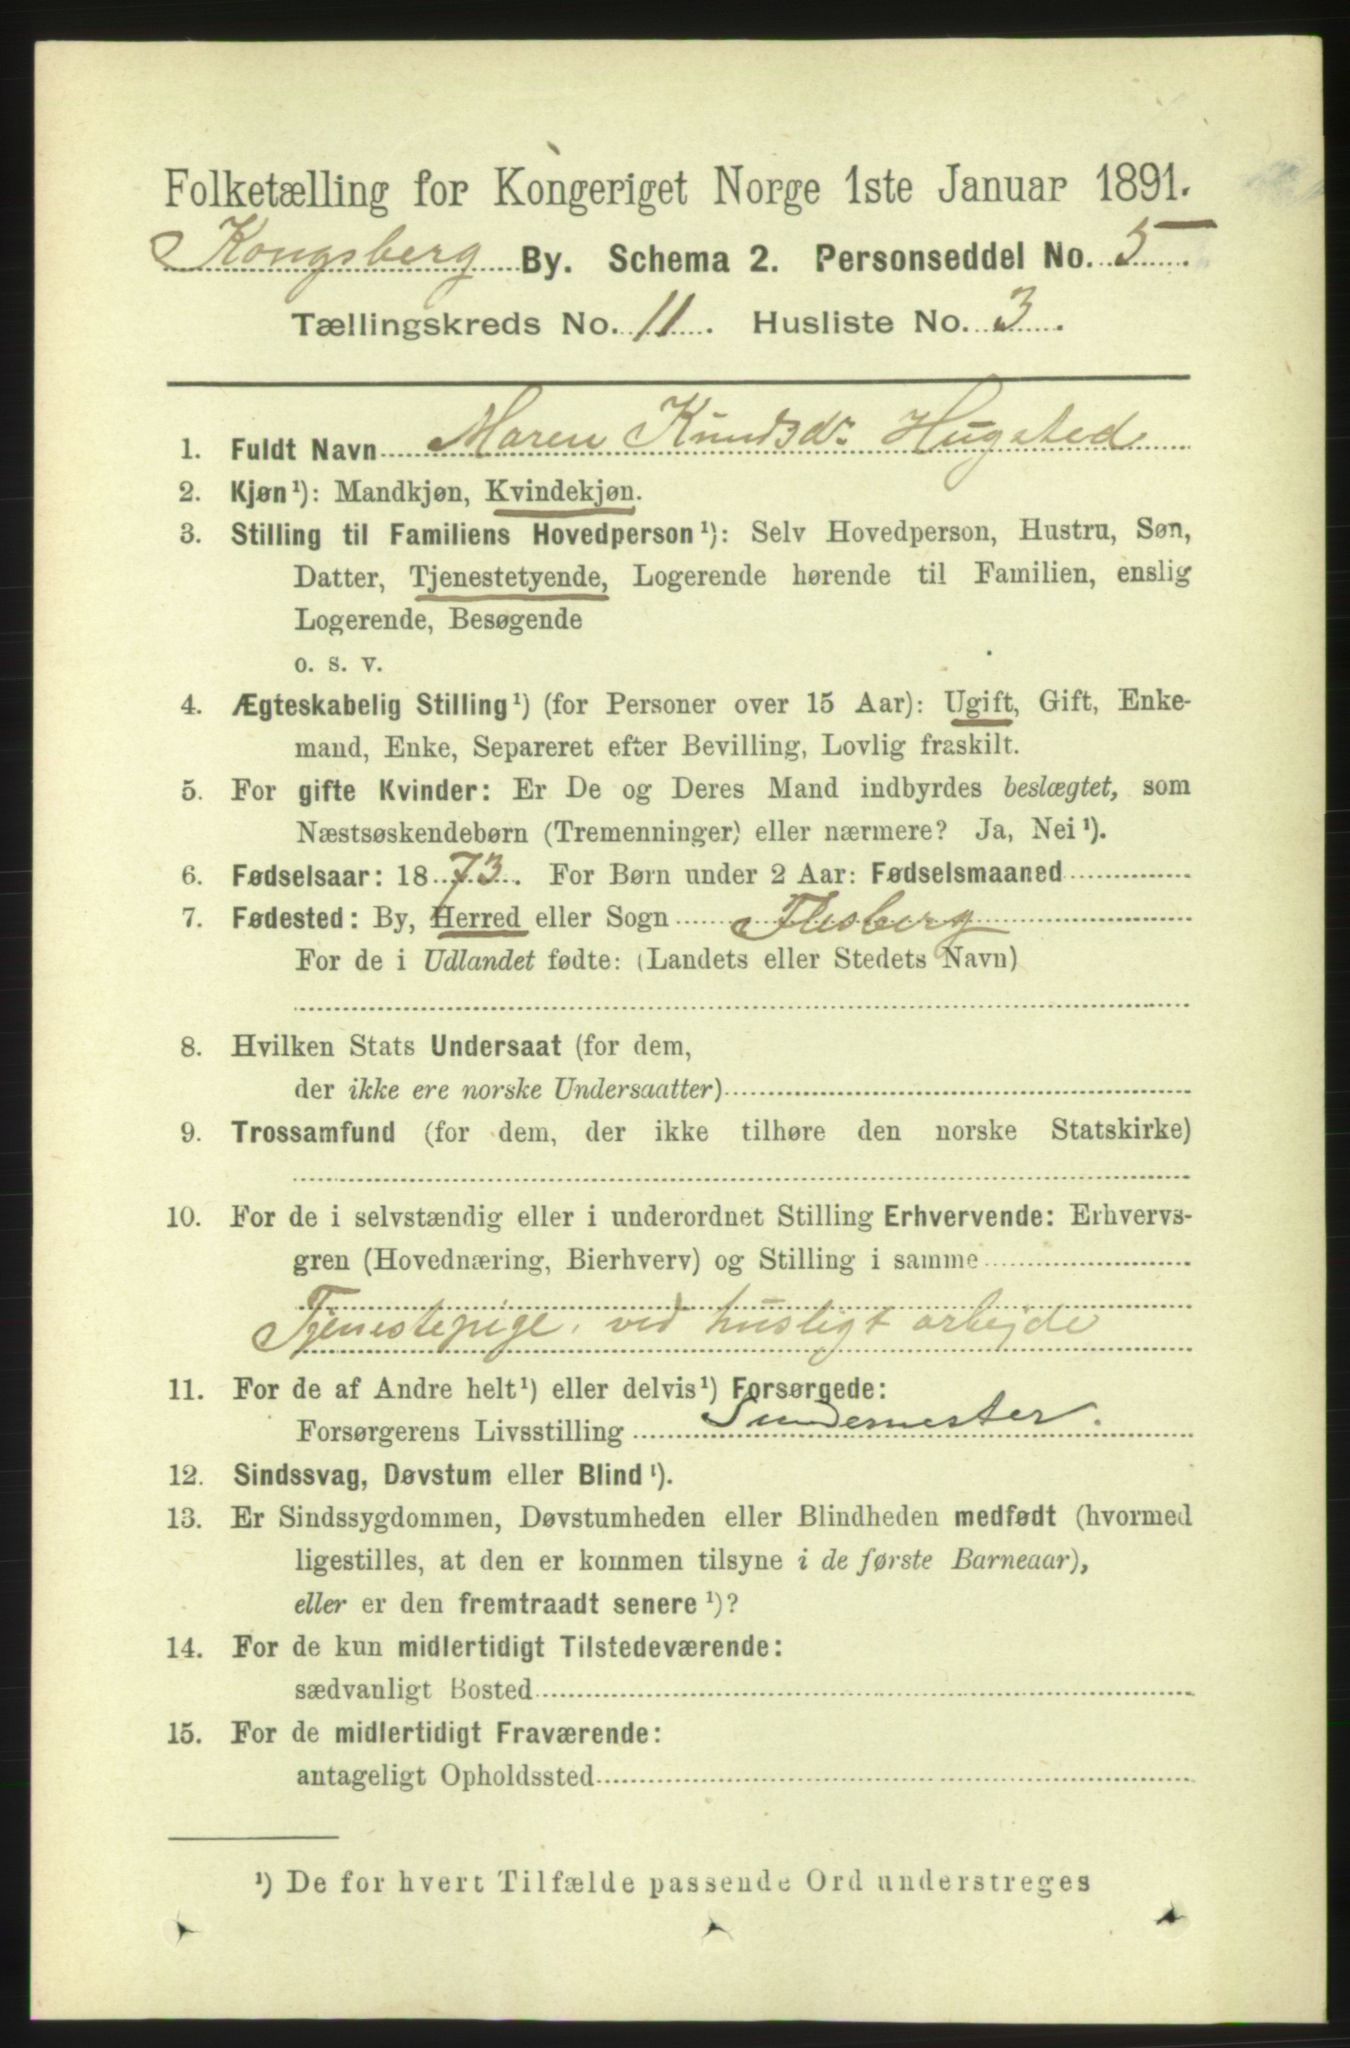 Folketælling for Kongeriget Norge 1ste Januar 1891.
Kongsberg By. Schema 2. Personseddel No. 5.
Tællingskreds No. 11. Husliste No. 3.
1. Fuldt Navn Maren Knudsdr. Hugsted
2. Kjøn¹): Mandkjøn, Kvindekjøn.
3. Stilling til Familiens Hovedperson¹): Selv Hovedperson, Hustru, Søn,
Datter, Tjenestetyende, Logerende hørende til Familien, enslig
Logerende, Besøgende
o. s. v.
4. Ægteskabelig Stilling¹) (for Personer over 15 Aar): Ugift, Gift, Enke-
mand, Enke, Separeret efter Bevilling, Lovlig fraskilt.
5. For gifte Kvinder: Er De og Deres Mand indbyrdes beslægtet, som
Næstsøskendebørn (Tremenninger) eller nærmere? Ja, Nei¹).
6. Fødselsaar: 1873. For Børn under 2 Aar: Fødselsmaaned
7. Fødested: By, Herred eller Sogn Flesberg
For de i Udlandet fødte: (Landets eller Stedets Navn)
8. Hvilken Stats Undersaat (for dem,
der ikke ere norske Undersaatter)
9. Trossamfund (for dem, der ikke tilhøre den norske Statskirke)
10. For de i selvstændig eller i underordnet Stilling Erhvervende: Erhvervs-
gren (Hovednæring, Bierhverv) og Stilling i samme
Tjenestepige, ved husligt arbejde
11. For de af Andre helt¹) eller delvis¹) Forsørgede:
Forsørgerens Livsstilling
12. Sindssvag, Døvstum eller Blind¹).
13. Er Sindssygdommen, Døvstumheden eller Blindheden medfødt (hvormed
ligestilles, at den er kommen tilsyne i de første Barneaar),
eller er den fremtraadt senere¹)?
14. For de kun midlertidigt Tilstedeværende:
sædvanligt Bosted
15. For de midlertidigt Fraværende:
antageligt Opholdssted
¹) De for hvert Tilfælde passende Ord understreges